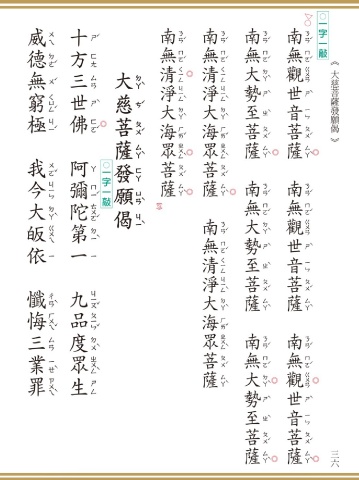 《大慈菩薩發願偈》
三六
○一字一敲
南無觀世音菩薩 南無觀世音菩薩 南無觀世音菩薩
南無大勢至菩薩 南無大勢至菩薩 南無大勢至菩薩
南無清淨大海眾菩薩
南無清淨大海眾菩薩 南無清淨大海眾菩薩
大慈菩薩發願偈
○一字一敲
十方三世佛 阿彌陀第一 九品度眾生
威德無窮極 我今大皈依 懺悔三業罪